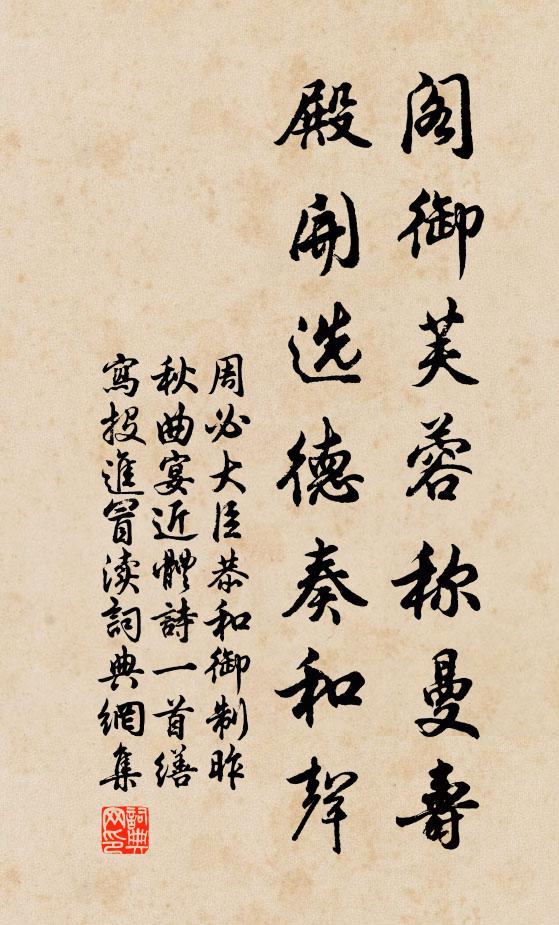 阁御芙蓉称曼壽
殿開选德奏和聲
周必大臣恭和御制昨
秋曲宴近體詩一首繕
寫投進冒渎詞典網集
詞典网印